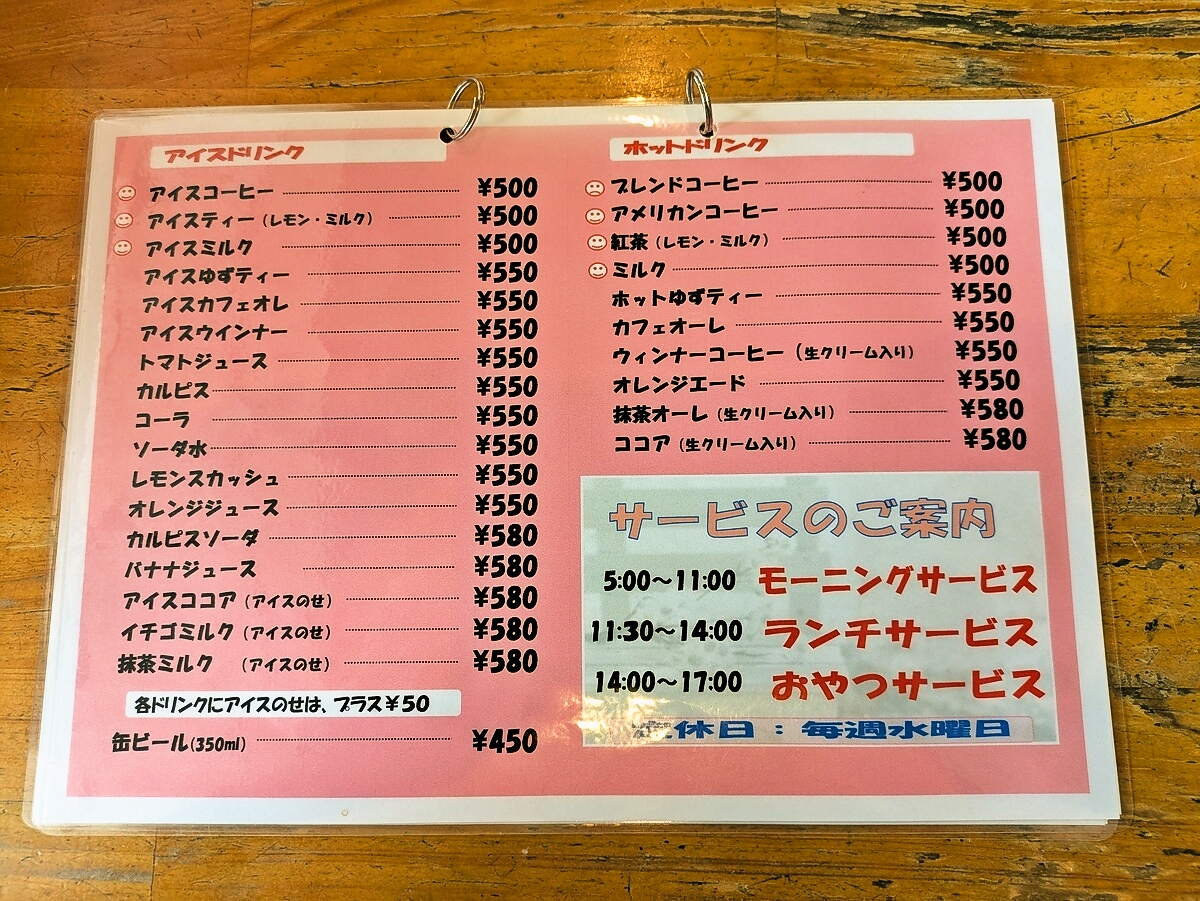 アイスドリンク
アイスコーヒー ¥500
アイスティー（レモン・ミルク） ¥500
アイスミルク ¥500
アイスゆずティー ¥550
アイスカフェオレ ¥550
アイスウインナー ¥550
トマトジュース ¥550
カルピス ¥550
コーラ ¥550
ソーダ水 ¥550
レモンスカッシュ ¥550
オレンジジュース ¥550
カルピスソーダ ¥580
バナナジュース ¥580
アイスココア（アイスのせ） ¥580
イチゴミルク（アイスのせ） ¥580
抹茶ミルク （アイスのせ） ¥580
各ドリンクにアイスのせは、プラス¥50
缶ビール(350ml) ¥450
ホットドリンク
ブレンドコーヒー ¥500
アメリカンコーヒー ¥500
紅茶（レモン・ミルク） ¥500
ミルク ¥500
ホットゆずティー ¥550
カフェオーレ ¥550
ウィンナーコーヒー（生クリーム入り） ¥550
オレンジエード ¥550
抹茶オーレ（生クリーム入り） ¥580
ココア（生クリーム入り） ¥580
サービスのご案内
5:00～11:00 モーニングサービス
11:30～14:00 ランチサービス
14:00～17:00 おやつサービス
定休日：毎週水曜日